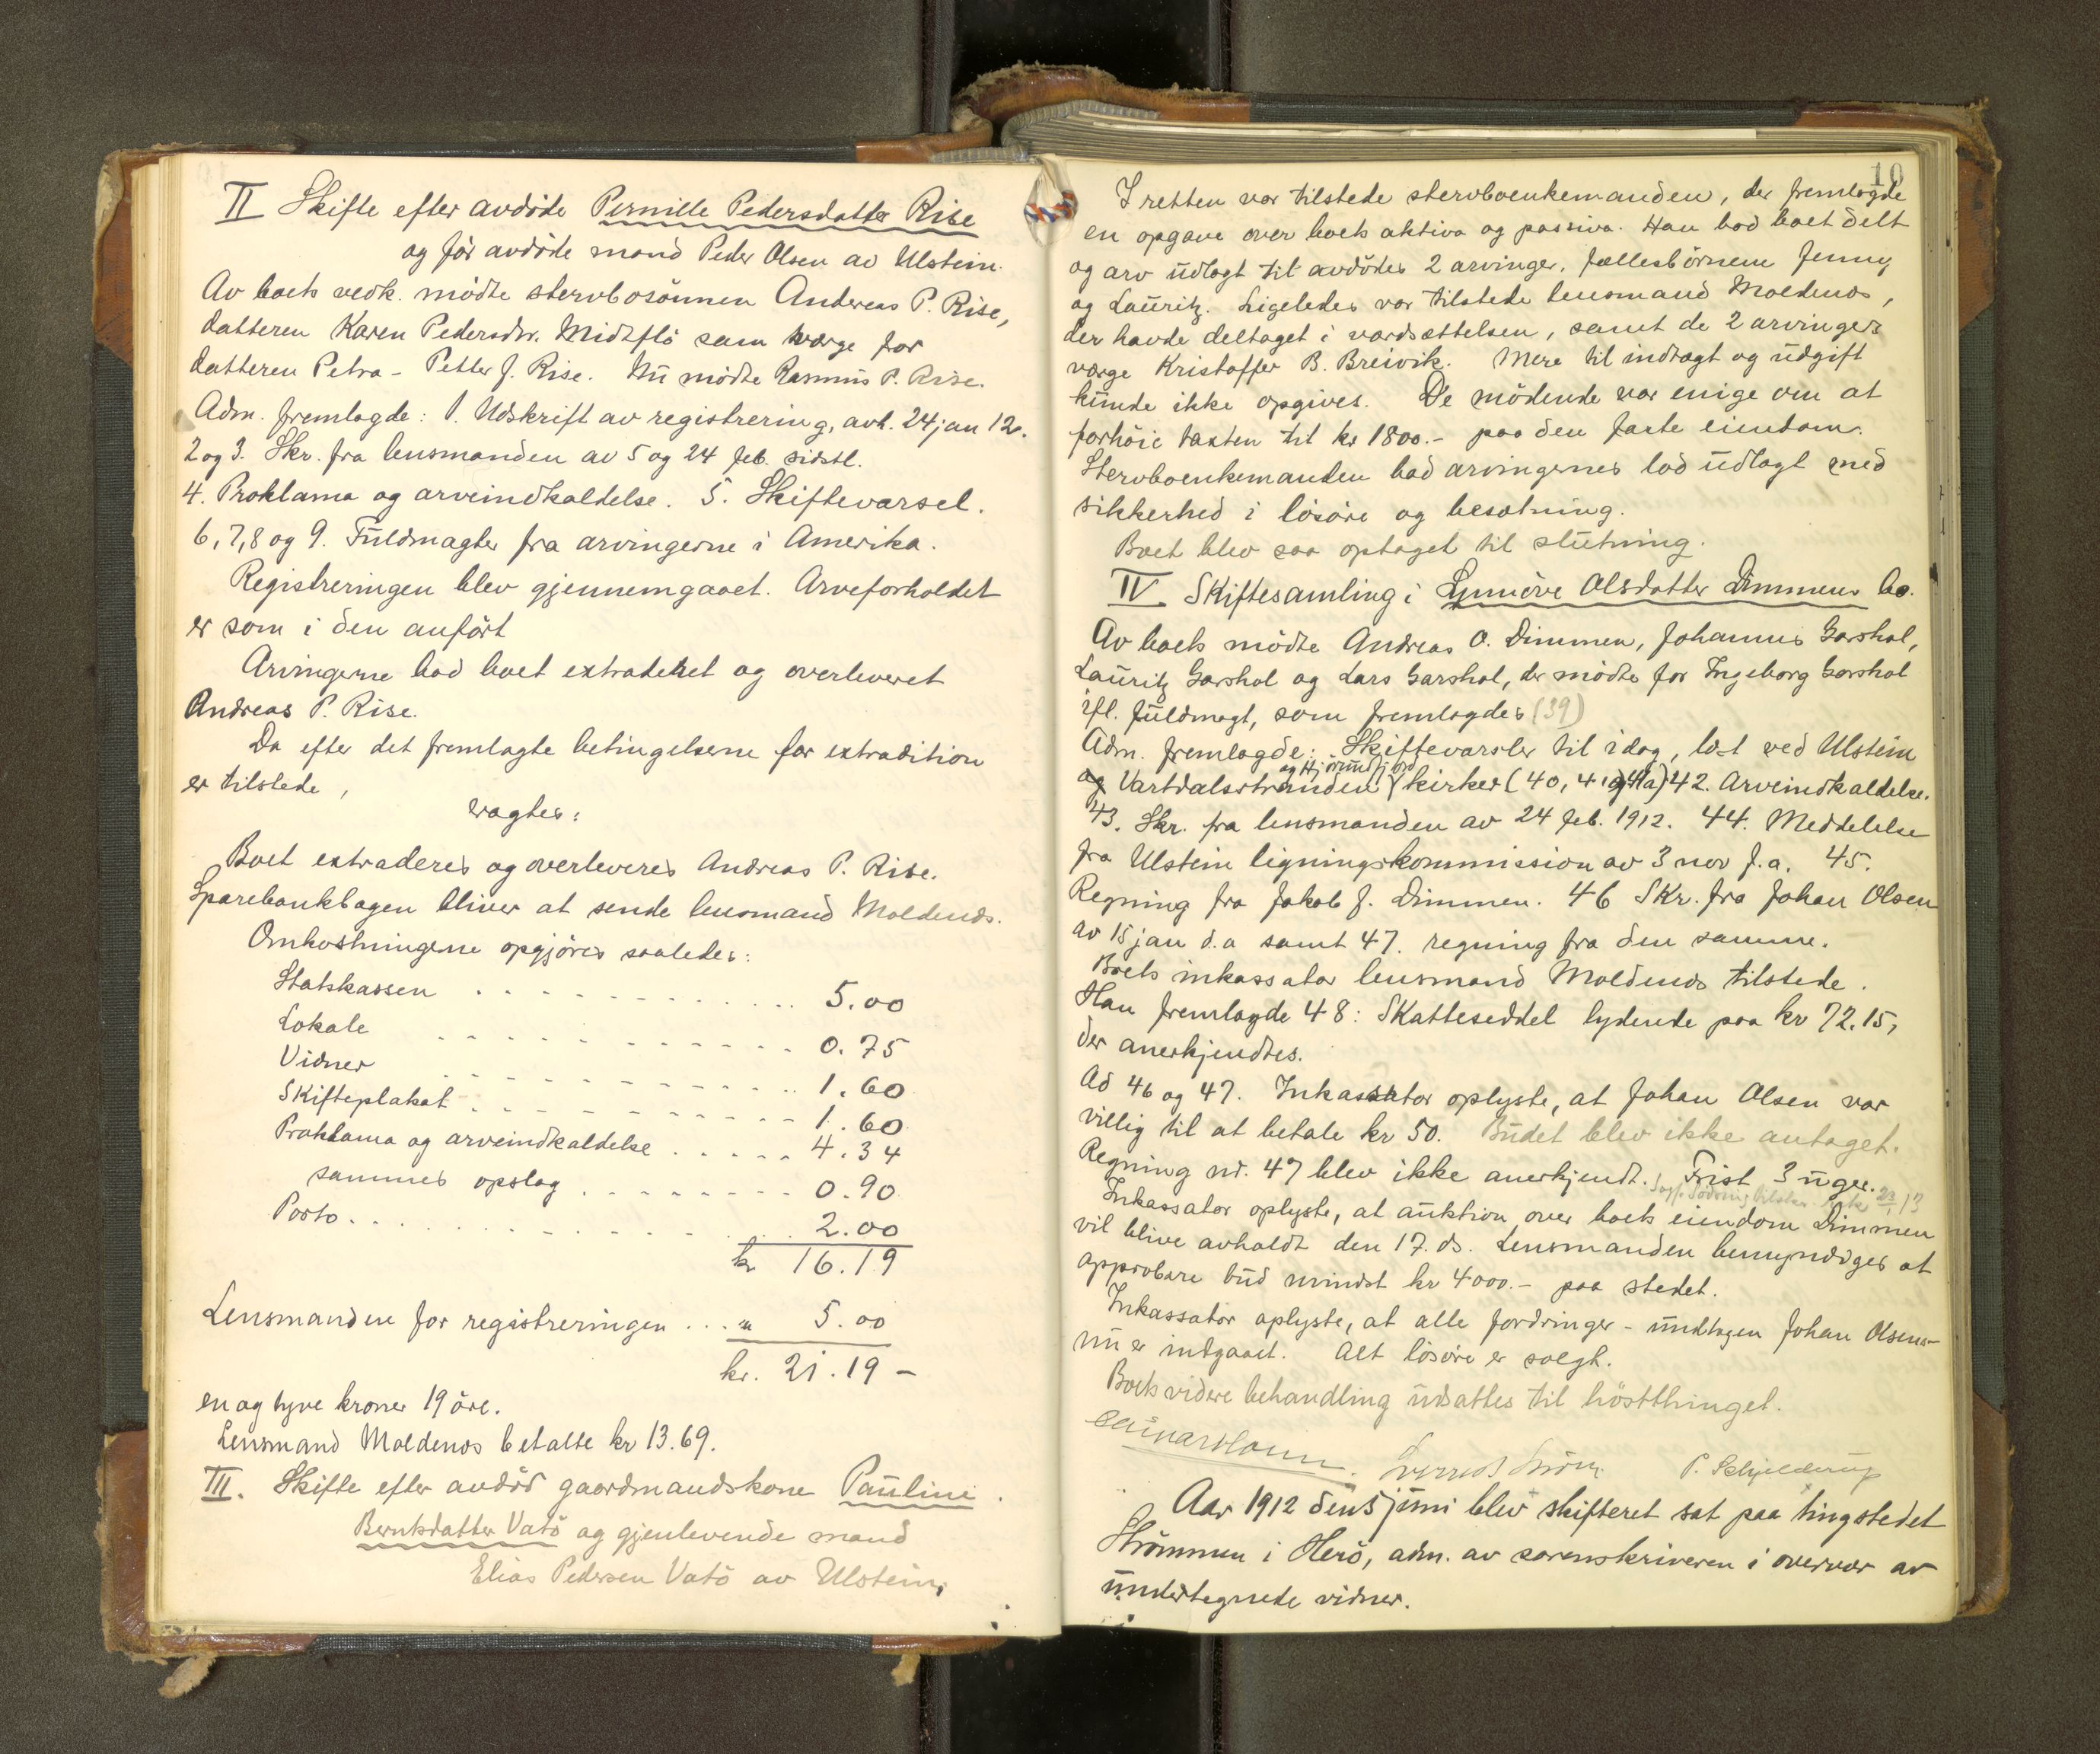 II Skifte efter avdöde Pernille Pedersdatter Rise
og för avdöde mand Peder Olsen av Ulstein.
Av boets vedk. mödte stervbosönnen Andreas P. Rise,
datteren Karen Pedersdtr. Midtflö som værge for
datteren Petra - Petter J. Rise. Nu mödte Rasmus P. Rise.
Adm. fremlagde: 1. Udskrift av registrering, avh. 24 jan 12.
2 og 3. Skr. fra lensmanden av 5 og 24 feb. sidstl.
4. Proklama og arveindkaldelse. 5. Skiftevarsel.
6, 7, 8 og 9. Fuldmagter fra arvingerne i Amerika.
Registreringen blev gjennemgaaet. Arveforholdet
er som i den anfört
Arvingerne bad boet extraderet og overleveret
Andreas P. Rise.
Da efter det fremlagte betingelserne for extradition
er tilstede,
vagtes:
Boet extraderes og overleveres Andreas P. Rise.
Sparebankbogen bliver at sende lensmand Moldenæs.
Omkostningerne opgjöres saaledes:
Statskassen . . . . . . . . . . 5.00
Lokale . . . . . . . . . . 0.75
Vidner . . . . . . . . . . 1.60
Skifteplakat . . . . . . . . . 1.60
Proklama og arveindkaldelse . . . . . 4.34
sammes opslag . . . . . . . . 0.90
Porto . . . . . . . . . . 2.00
kr 16.19
Lensmanden for registreringen . . . " 5.00
kr. 21.19 -
en og tyve kroner 19 öre.
Lensmand Moldenæs betalte kr 13.69.
III. Skifte efter avdöd gaardmandskone Pauline
Berntsdatter Vatö og gjenlevende mand
Elias Pedersen Vatö av Ulstein,
10
I retten var tilstede stervboenkemanden, der fremlagde
en opgave over boets aktiva og passiva. Han bad boet delt
og arv udlagt til avdödes 2 arvinger, fællesbörnene Jenny
og Lauritz. Ligeledes var tilstede lensmand Moldenæs,
der havde deltaget i værdsættelsen, samt de 2 arvingers
værge Kristoffer B. Breivik. Mere til indtægt og udgift
kunde ikke opgives. De mödende var enige om at
forhöie taxten til kr 1800.- paa den faste eiendom.
Stervboenkemanden bad arvingernes lod udlagt med
sikkerhed i lösöre og besætning.
Boet blev saa optaget til slutning.
IV Skiftesamling i Synnöve Olsdatter Dimmens bo.
Av boets mödte Andreas O. Dimmen, Johannes Garshol,
Lauritz Garshol og Lars Garshol, der mödte for Ingeborg Garshol
ifl. fuldmagt, som fremlagdes (39)
Adm. fremlagde: Skiftevarsler til idag, læst ved Ulstein
og Hjörundfjord
og Vartdalsstranden kirker (40, 41 og 41a) 42. Arveindkaldelse.
43. Skr. fra lensmanden av 24 feb. 1912. 44. Meddelelse
fra Ulstein ligningskommission av 3 nov f.a. 45.
Regning fra Jakob J. Dimmen. 46 Skr. fra Johan Olsen
av 15 jan d.a samt 47. regning fra den samme.
Boets inkassator lensmand Moldenæs tilstede.
Han fremlagde 48: Skatteseddel lydende paa kr 72.15,
der anerkjendtes.
Ad 46 og 47. Inkassator oplyste, at Johan Olsen var
villig til at betale kr 50. Budet blev ikke antaget.
Regning nr. 47 blev ikke anerkjendt. Frist 3 uger.
Inkassator oplyste, at auktion over boets eiendom Dimmen
vil blive avholdt den 17. ds. Lensmanden bemyndiges at
approbere bud mindst kr 4000.- paa stedet.
Inkassator oplyste, at alle fordringer - undtagen Johan Olsens -
nu er indgaaet. Alt lösöre er solgt.
Boets videre behandling udsattes til höstthinget.
P. Schjelderup
Aar 1912 den 5 juni blev skifteret sat paa tingstedet
Strömmen i Herö, adm. av sorenskriveren i overvær av
undertegnede vidner.